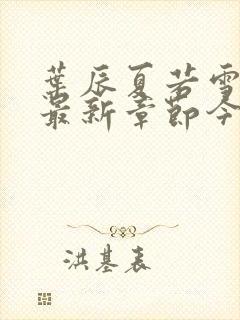 葉辰夏若雪
最新章節今
洪基表